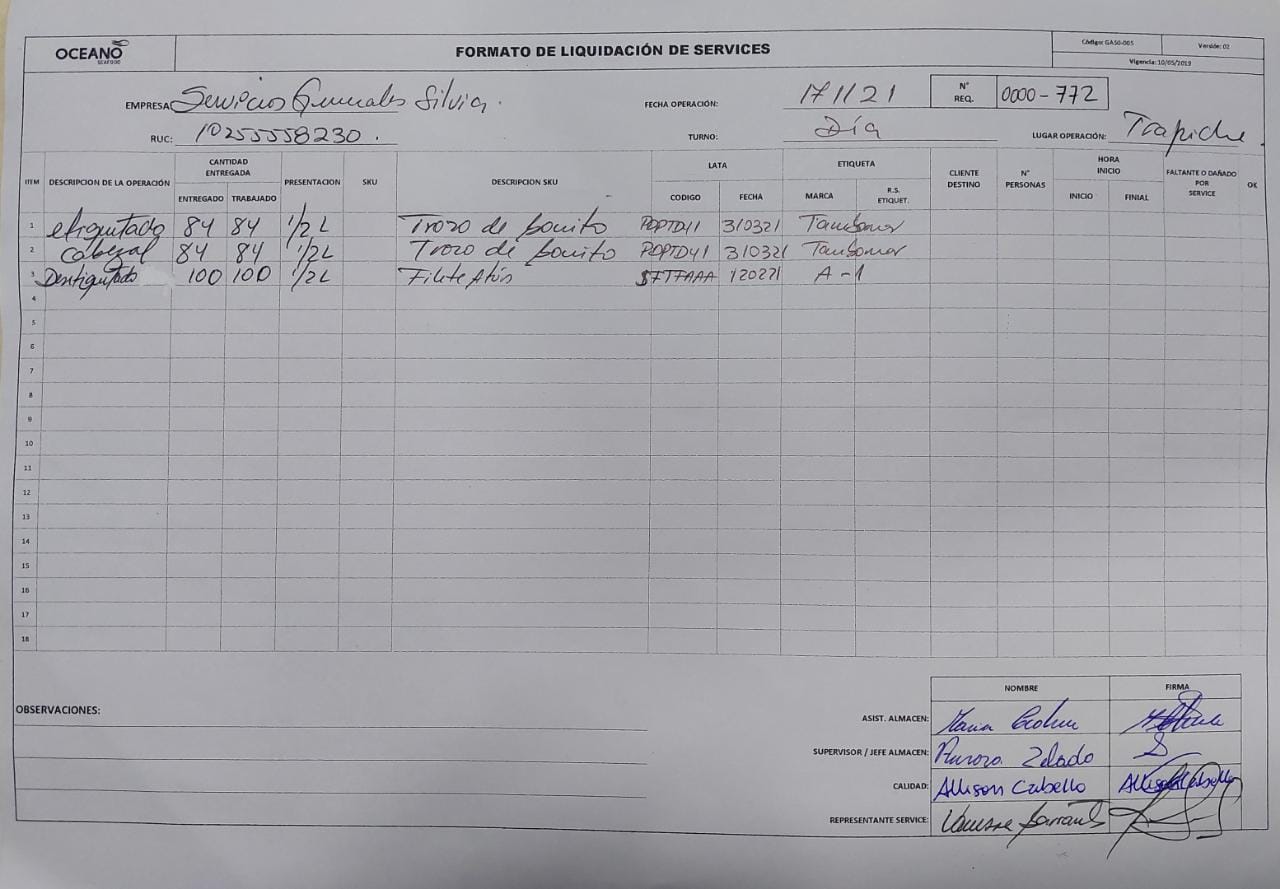 OCEANO SEAFOOD
FORMATO DE LIQUIDACIÓN DE SERVICES
Código: GASG-005
Versión: 02
Vigencia: 10/05/2019
EMPRESA: Servicios Generales Silvia.
FECHA OPERACIÓN: 171121
N° REQ. 0000-772
RUC: 10255558230.
TURNO: Día
LUGAR OPERACIÓN: Trapiche.
ITEM DESCRIPCION DE LA OPERACIÓN CANTIDAD ENTREGADA ENTREGADO TRABAJADO PRESENTACION SKU DESCRIPCION SKU LATA CODIGO FECHA ETIQUETA MARCA R.S. ETIQUET. CLIENTE DESTINO N° PERSONAS HORA INICIO INICIO FINIAL FALTANTE O DAÑADO POR SERVICE OK
1 etiquetado 84 84 1/2 L Trozo de bonito 310321 Tambomar
2 cabezal 84 84 1/2L Trozo de bonito 310321 Tambomar
3 Desetiquetado 100 100 1/2L Filete Atún 120221 A-1
4
5
6
7
8
9
10
11
12
13
14
15
16
17
18
NOMBRE FIRMA
OBSERVACIONES:
ASIST. ALMACEN: Maria
SUPERVISOR / JEFE ALMACEN: Aurora
CALIDAD: Allison Cabello Allison Cabello
REPRESENTANTE SERVICE: Vanessa